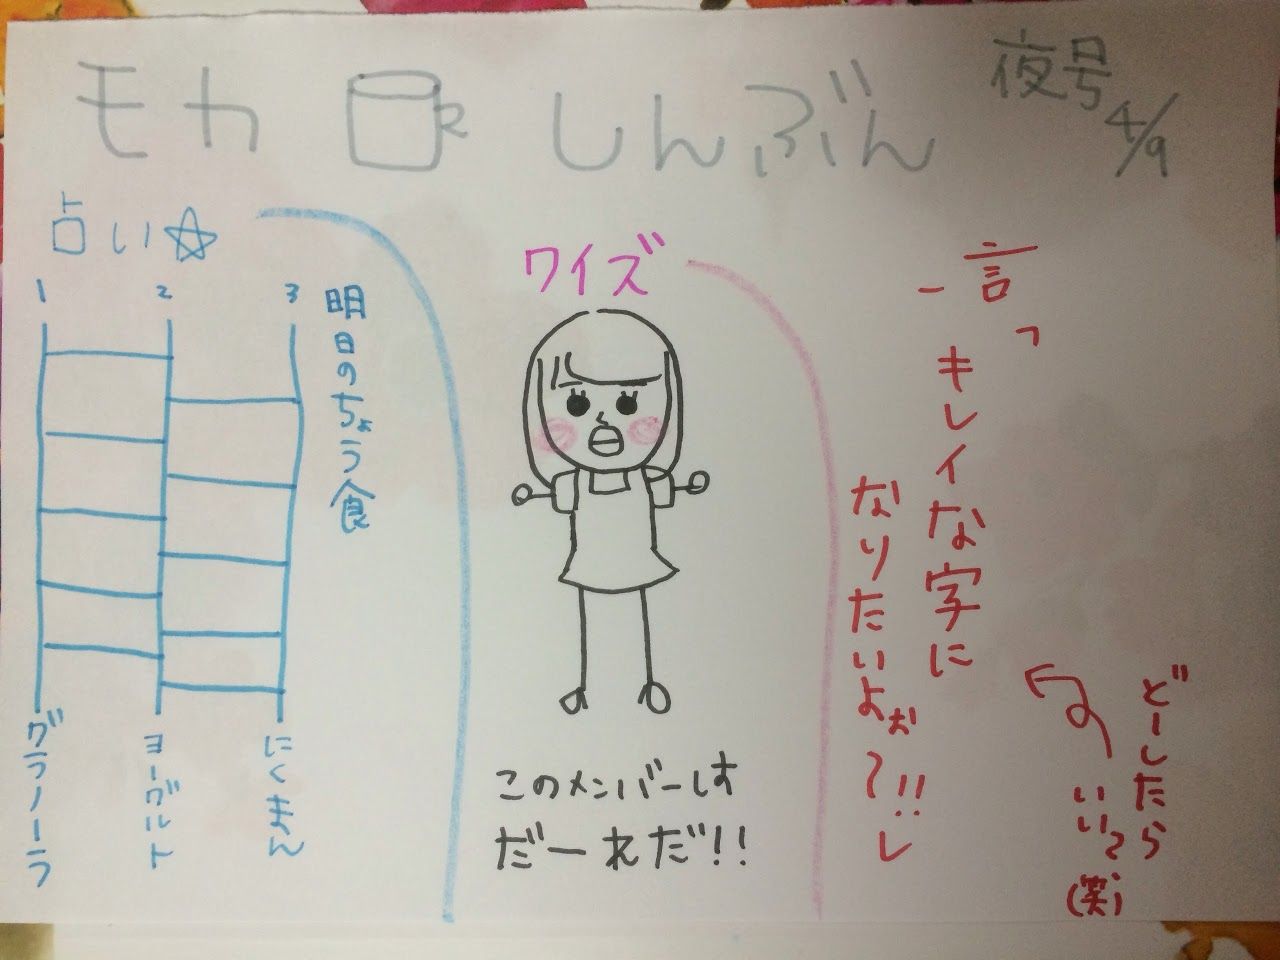 モカ しんぶん
夜号
4/9
占い☆
1 2 3
明日のちょう食
グラノーラ
ヨーグルト
にくまん
ワイズ
このメンバーわ
だーれだ!!
一言
「キレイな字に
なりたいよぉ〜!!」
どーしたら
いい?
(笑)